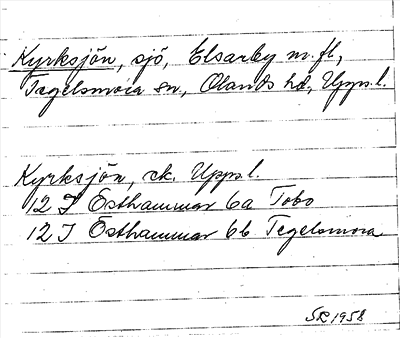 Kyrksjön, sjö, Elsarby m. fl.,
Tegelsmora sn, Olands hd, Upps. l.
Kyrksjön, ek. Upps. l.
12 I Östhammar 6a Tobo
12 I Östhammar 6b Tegelsmora
SR 1958